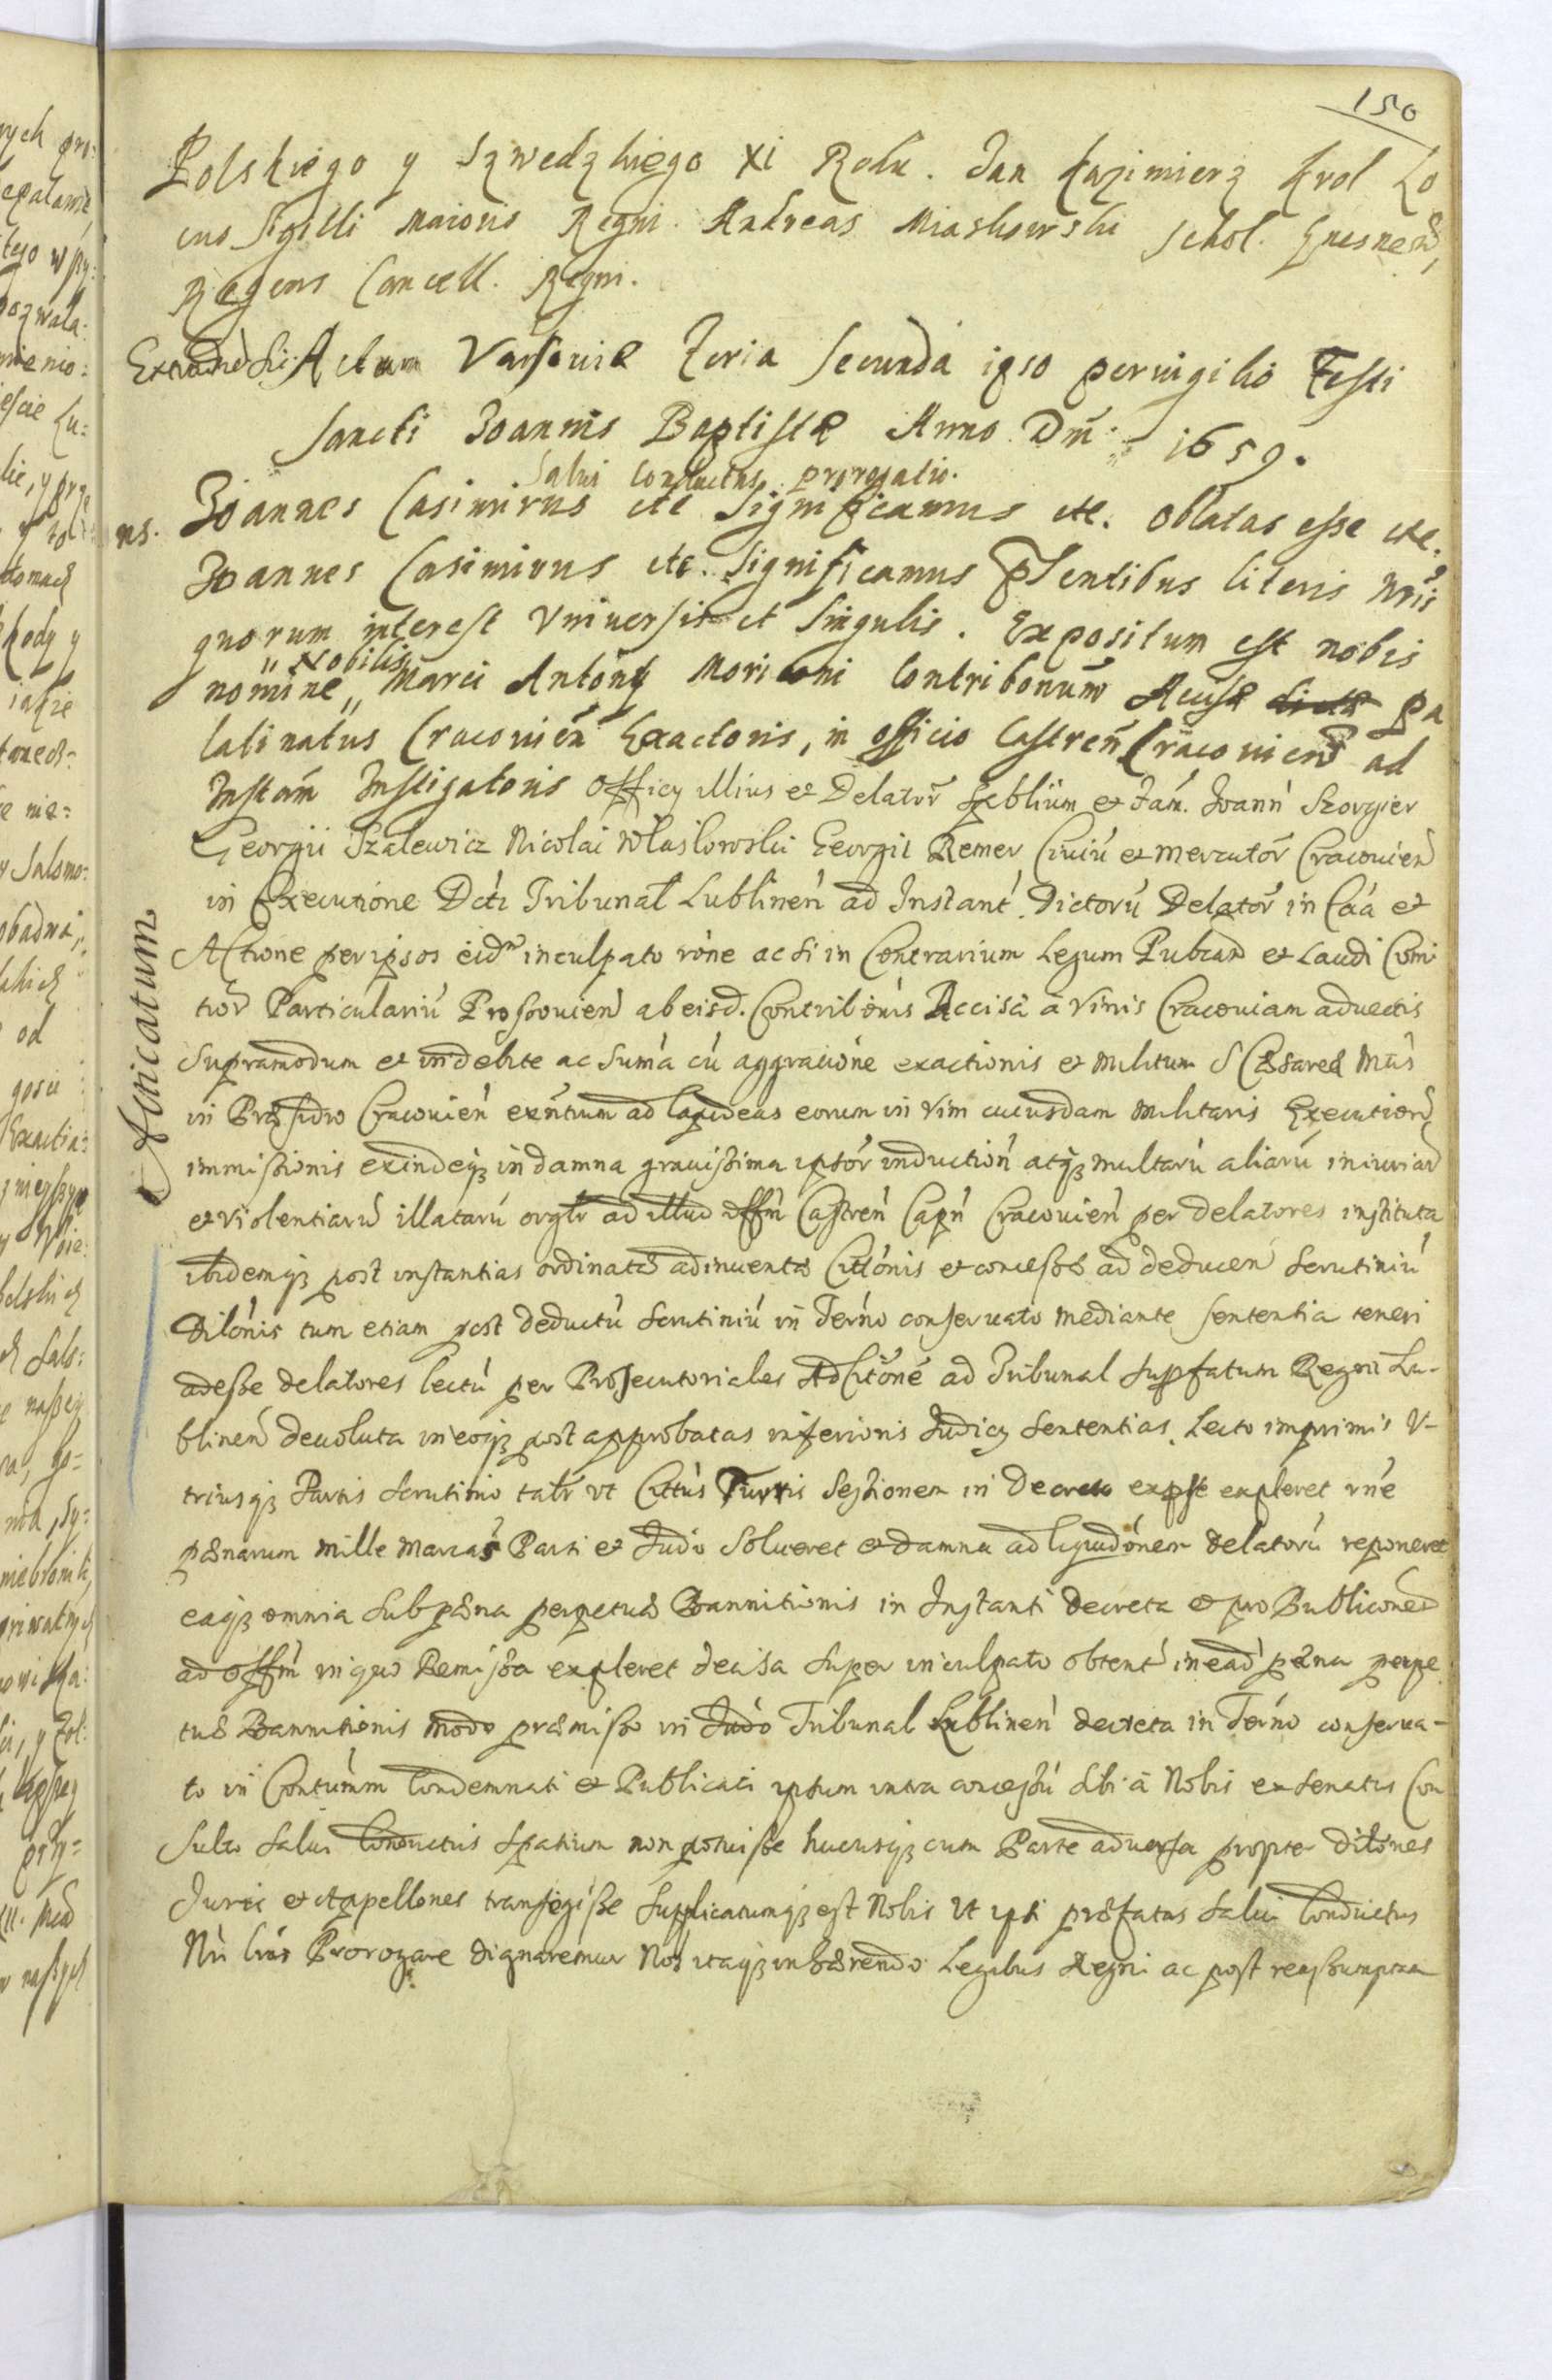 150
Polskiego y Szwedzkiego XI Roku. Jan Kazimierz Krol Lo
cus Sigilli Maioris Regni. Andreas Miaskowski Schol. Gnesneñ,
Regens Cancell. Regni.
Actum Varsouiæ Feria Secunda ipso peruigilio Festi
Sancti Joannis Baptistæ Anno Dni 1659.
Salui Conductus prorogatio.
ns. Joannes Casimirus etc Significamus etc. oblatas esse etc.
Joannes Casimirus etc. Significamus pñtentibus literis nris
quorum interest Vniuersis et Singulis. Expositum est nobis
Nobilis
nomine Marci Antonij Moriconi Contribonum Acisæ pa
latinatus Cracouień Exactoris, in officio Castreń Cracouień ad
Instam Instigatoris Officy illius et Delator̃ et Fam. Joann Szorgier
Georgii Szalewicz Nicolai Wlaslowski Georgii Remer Ciuiũ et mercator̃ Cracouień
in Executione Dcti Tribunal Lublineń ad Instant. Dictorũ Delator̃ in Caa et
Actione per ipsos eidm inculpato rõne ac si in Contrarium Legum Publcar et Laudi Comi
tior Particulariũ Proszouień ab eisd. Contribõnis Accisæ a Vinis Cracouiam aduectis
Supramodum et indebite ac Suma cũ aggrauatione exactionis et militum S Cæsareæ Mtis
in Præsidio Cracouień exñtium ad lapideas eorum in Vim cuiusdam militaris Execution
immissionis exindeqз in damna grauissima ipsor̃ induction atqз multarũ aliarũ iniuriar
et violentiarũ illatarũ orgtr ad illud offm Castreń Capń Cracouień per delatores instituta
ibidemqз post instantias ordinatas adinuentæ Cittõnis et concessæ ad deducen Scrutiniũ
Dilõnis tum etiam post deductũ Scrutiniũ in Termo conseruato mediante Sententia teneri
adesse delatores lectũ per Prosecutoriales Adcitõnē ad Tribunal Supfatum Regni Lu-
blineń deuoluta in eoqз post approbatas inferioris Judicy Sententias. Lecto imprimis V-
triusqз Partis Scrutinio talr ut Cittũs Turris Sessionem in Decreto expleret
pænarum mille marcas Parti et Judo Solueret et damna ad liquidõnem delatorũ reponeret
eaqз omnia Sub pæna perpetuæ Bannitionis in Instanti decreta et pro Publicone
ad offm in quo Remissa expleret decisa Super inculpato obtent in ead pæna perpe
tuæ Bannitionis modo præmisso in Judo Tribunal Lublineń decreta in Termo conserua-
to in Contumm Condemnati et Publicati ipsum intra concessũ Sibi a Nobis ex Senatus Con
Sulto Salui Conductus Spatium non potuisse hucusqз cum Parte aduersa propter dilones
Juris et Appellones transegisse Supplicatumqз est Nobis ut ipsi præfatas Salui Conductus
Nri lras Prorogare dignaremur Nos itaqз inhærendo Legibus Regni ac post reassumptam